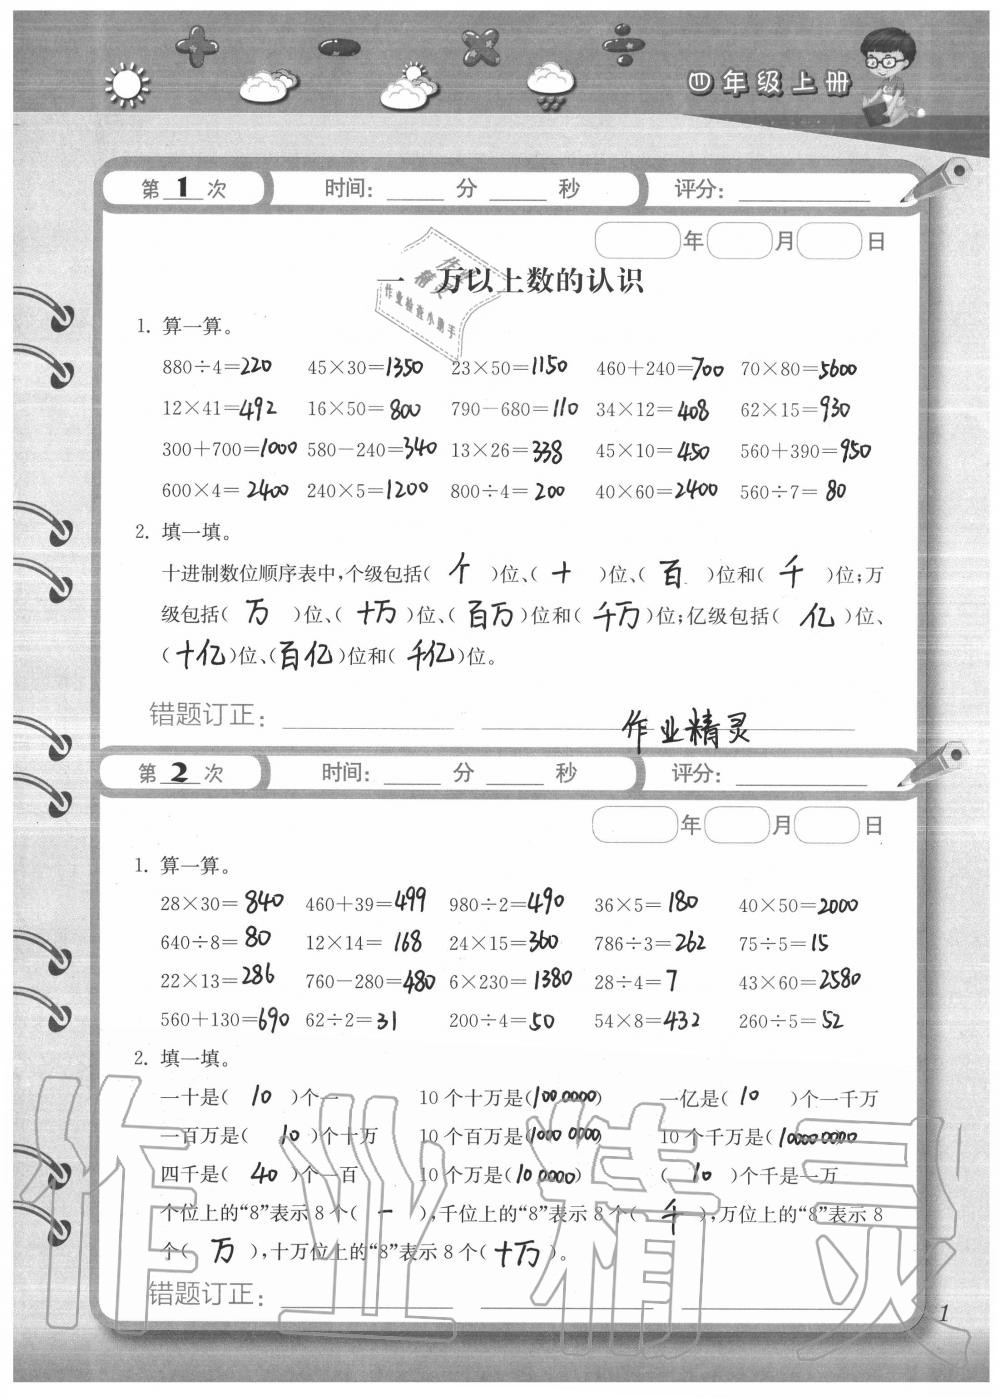 四年级上册
第 1 次 时间: 分 秒 评分:
年 月 日
作业精灵
作业检查小助手
一 万以上数的认识
1. 算一算。
880÷4=220 45×30=1350 23×50=1150 460+240=700 70×80=5600
12×41=492 16×50=800 790-680=110 34×12=408 62×15=930
300+700=1000 580-240=340 13×26=338 45×10=450 560+390=950
600×4=2400 240×5=1200 800÷4=200 40×60=2400 560÷7=80
2. 填一填。
十进制数位顺序表中,个级包括( 个 )位、( 十 )位、( 百 )位和( 千 )位;万
级包括( 万 )位、( 十万 )位、( 百万 )位和( 千万 )位;亿级包括( 亿 )位、
( 十亿 )位、( 百亿 )位和( 千亿 )位。
错题订正:
作业精灵
第 2 次 时间: 分 秒 评分:
年 月 日
1. 算一算。
28×30=840 460+39=499 980÷2=490 36×5=180 40×50=2000
640÷8=80 12×14=168 24×15=360 786÷3=262 75÷5=15
22×13=286 760-280=480 6×230=1380 28÷4=7 43×60=2580
560+130=690 62÷2=31 200÷4=50 54×8=432 260÷5=52
2. 填一填。
一十是( 10 )个一 10个十万是(1000000) 一亿是( 10 )个一千万
一百万是( 10 )个十万 10个百万是(10000000) 10个千万是(100000000)
四千是( 40 )个一百 10个万是(100000) ( 10 )个千是一万
个位上的“8”表示8个( 一 ),千位上的“8”表示8个( 千 ),万位上的“8”表示8
个( 万 ),十万位上的“8”表示8个( 十万 )。
错题订正:
作业精灵
1